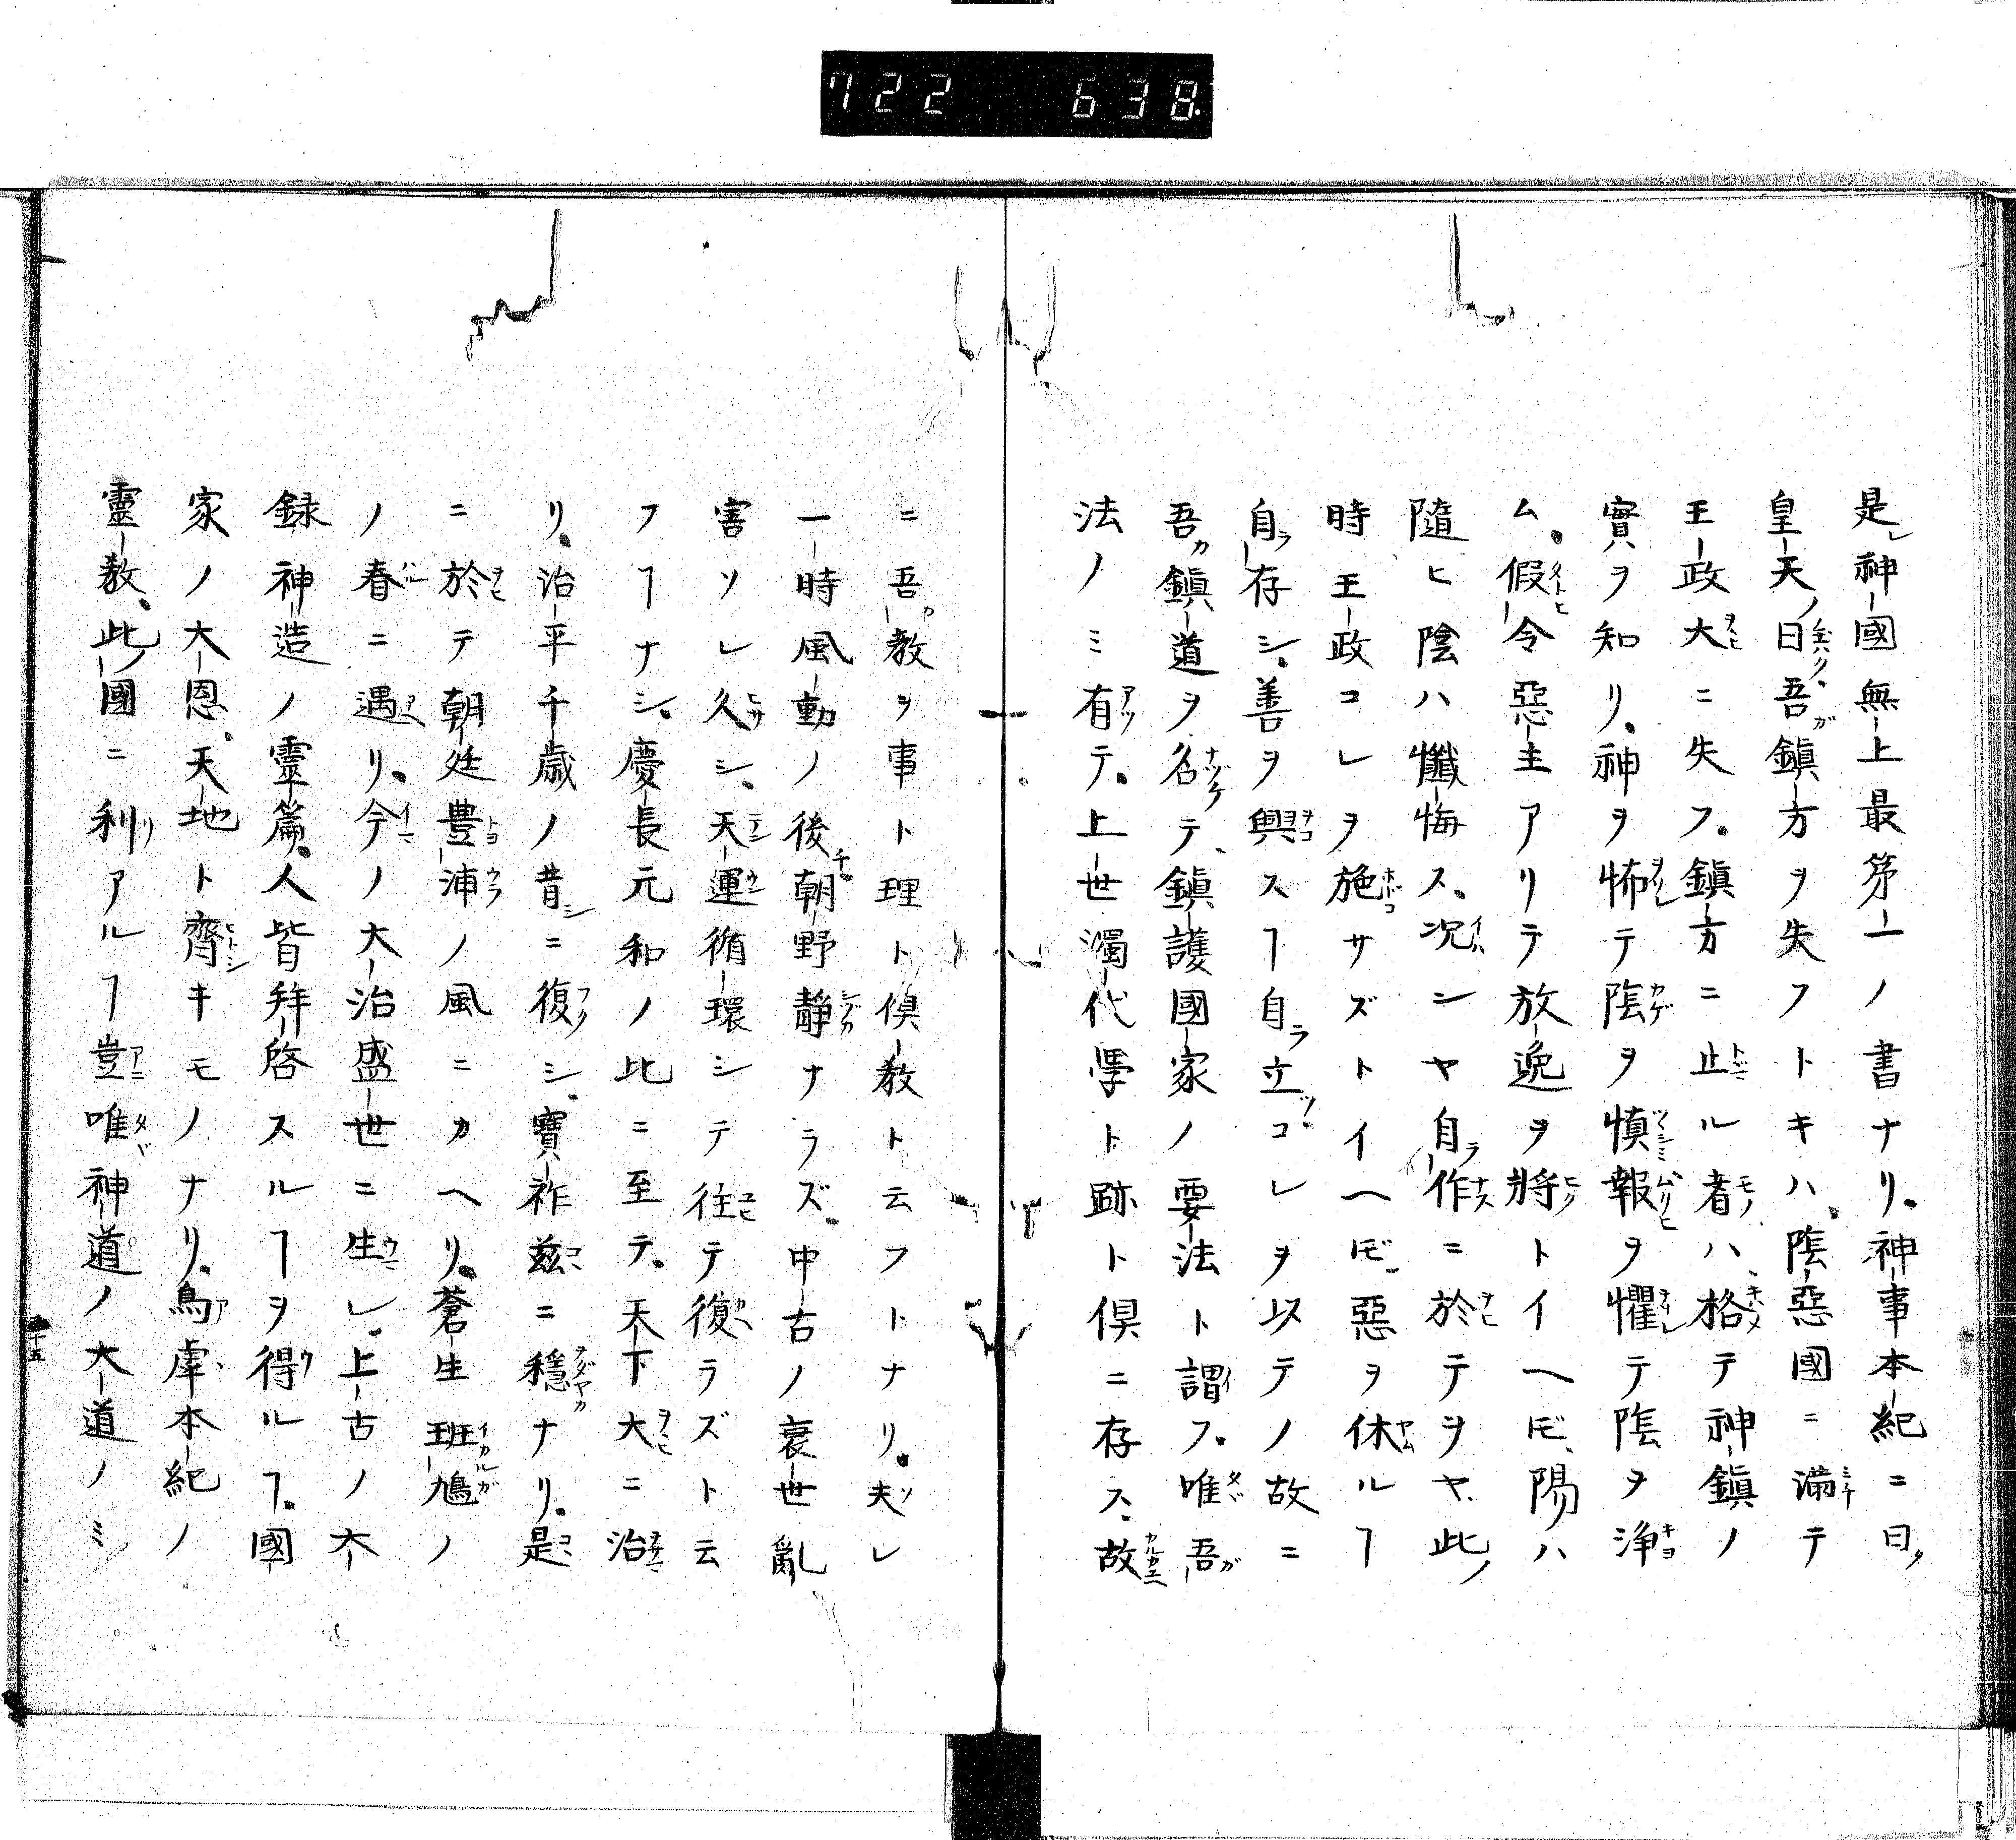 722 638.
是レ神國無上最第一ノ書ナリ。神事本紀ニ曰ク
皇天ノ曰ク。吾ガ鎮方ヲ失フトキハ、陰惡國ニ満テ
王政大ニ失フ。鎮方ニ止ル者ハ、格テ神鎮ノ
實ヲ知リ。神ヲ怖テ陰ヲ慎報ヲ懼テ陰ヲ浄
ム。假令惡主アリテ放逸ヲ將トイヘ𪜈、陽ハ
隨ヒ陰ハ懺悔ス、况ンヤ自ラ作ニ於テヲヤ、此ノ
時王政コレヲ施サズトイヘ𪜈、惡ヲ休ルヿ
自ラ存シ、善ヲ興スヿ自ラ立。コレヲ以テノ故ニ
吾カ鎮道ヲ名テ、鎮護國家ノ要法ト謂フ。唯吾ガ
法ノミ有テ。上世濁代學ト跡ト倶ニ存ス、故
ニ吾カ教ヲ事ト理ト倶教ト云フトナリ。夫レ
一時風動ノ後朝野靜ナラズ、中古ノ衰世亂
害ソレ久シ、天運循環シテ往テ復ラズト云
フヿナシ、慶長元和ノ比ニ至テ。天下大ニ治
リ。治平千歳ノ昔シニ復シ、寶祚茲ニ穩ナリ。是
ニ於テ朝廷豊浦ノ風ニカヘリ。蒼生班鳩ノ
ノ春ニ遇リ。今ノ大治盛世ニ生レ。上古ノ大
録神造ノ靈篇。人皆拜啓スルヿヲ得ルヿ。國
家ノ大恩、天地ト齊キモノナリ。鳥虖本紀ノ
靈教、此ノ國ニ利アルヿ豈唯神道ノ大道ノミ
十五